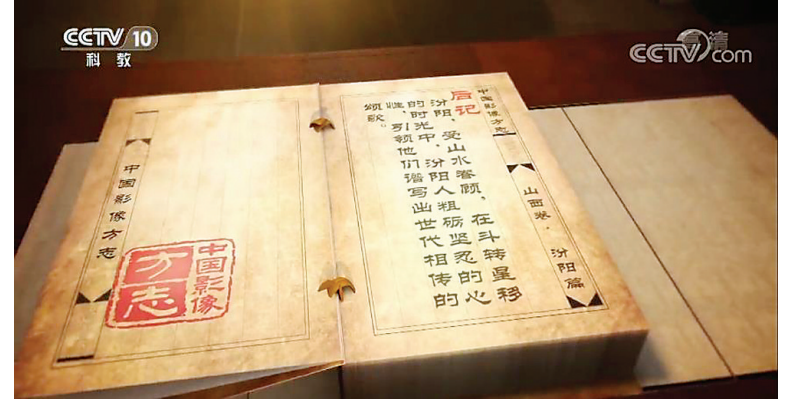 CCTV 10
科教
高清
CCTV.com
中国影像方志
山西卷·汾阳篇
后记
汾阳，受山水眷顾，在斗转星移
的时光中，汾阳人粗砺坚忍的心
性，引领他们谱写出世代相传的
颂歌。
中国影像方志
中国影像
方志